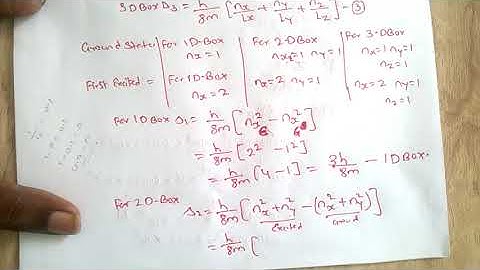 3D Box D3 = h/8m [nx²/Lx + ny²/Ly + nz²/Lz] - ③
Ground State: For 1D-Box nx=1 | For 2D-Box nx=1 ny=1 | For 3-D Box nx=1 ny=1 nz=1
First Excited = For 1D-Box nx=2 | nx=2 ny=1 | nx=2 ny=1 nz=1
For 1D Box Δ1 = h/8m [nx² - nx²]
= h/8m [2² - 1²]
= h/8m [4-1] = 3h/8m - 1D Box.
For 2D-Box Δ2 = h/8m [nx²+ny² - (nx²+ny²)]
Excited Ground
= h/8m [